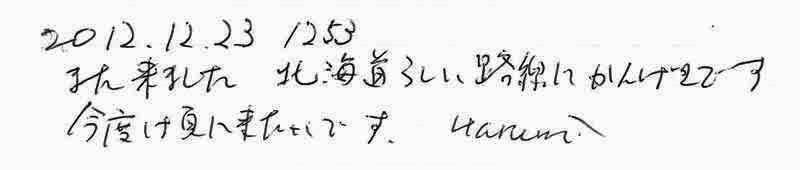 2012.12.23 1253
また来ました 北海道らしい路線にかんげきです
今度は夏に来たいです. Harumi